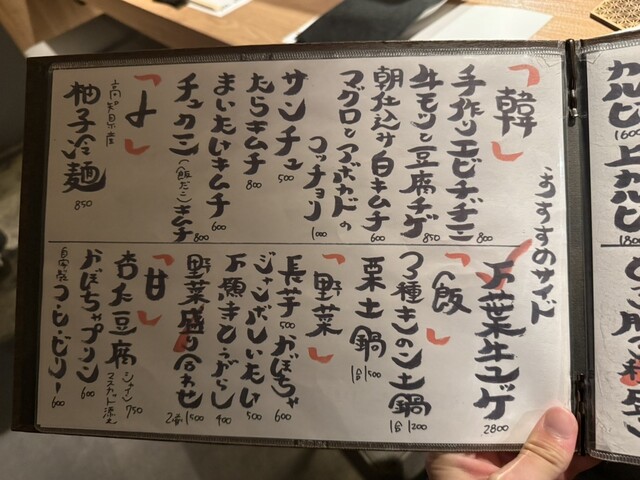 おすすめのサイド
「韓」
手作りエビチヂミ 800
牛モツと豆腐チゲ 850
朝仕込み白キムチ 600
マグロとアボカドの
コッチョリ 1000
サンチュ 500
たらキムチ 800
まいたけキムチ 600
チュクミ(飯だこ)キムチ 800
「〆」
高知県産
柚子冷麺 850
万葉牛ユッケ 2800
「飯」
3種きのこ土鍋 1合1200
栗土鍋 1合1500
「野菜」
長芋 500
かぼちゃ 600
ジャンボしいたけ 500
万願寺とうがらし 400
野菜盛り合わせ 2名1500
「甘」
杏仁豆腐 シャインマスカット添え 750
かぼちゃプリン 600
600
カルビ
1600
上カルビ
1800